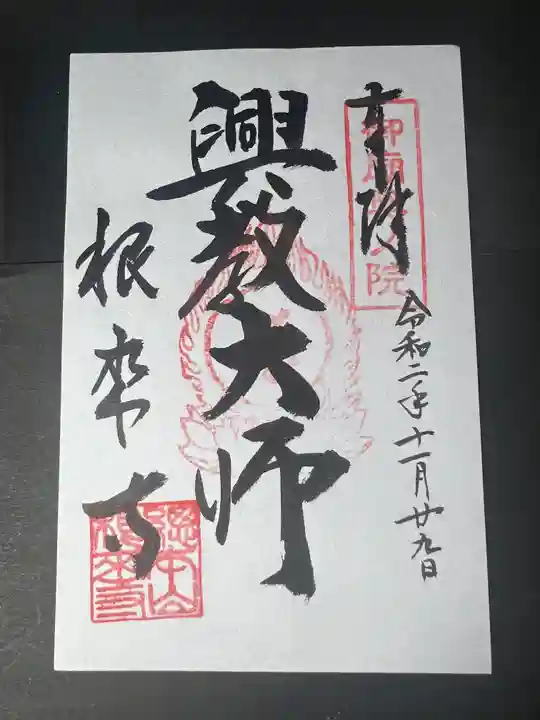 奉拝
御廟奥之院
令和二年十一月廿九日
興教大師
根来寺
総本山
根来寺